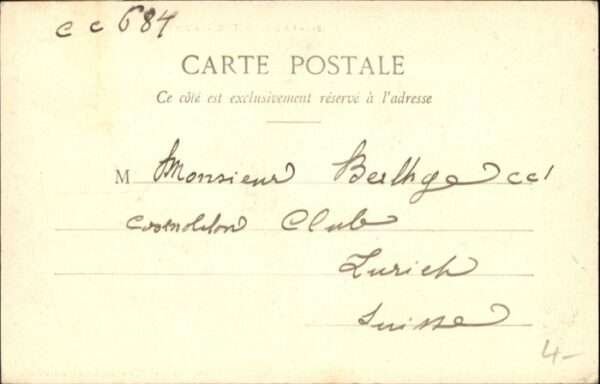 c c 684
CARTE POSTALE
Ce côté est exclusivement réservé à l'adresse
M Monsieur cc
Club
Zurich
Suisse
4-